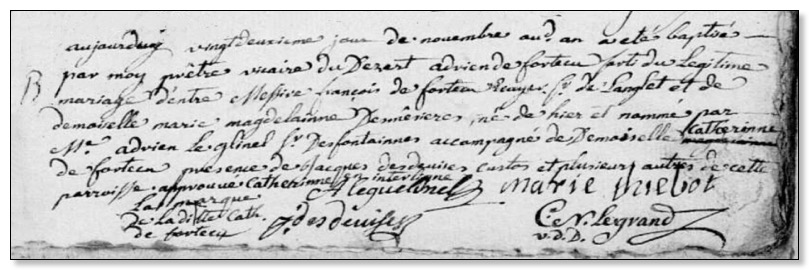 B
aujourdhuy vingtdeuxieme jour de novembre aud. an a eté baptisé
par moy prêtre vicaire du Dezert adrien de fortecu sorti du legitime
mariage d'entre Messire françois de fortecu Ecuyer Sr. de Langlet et de
demoiselle marie magdelainne né de hier et nommé par
Mr. adrien le Sr. Desfontainnes accompagné de Demoiselle Catherinne
de fortecu presence de Jacques desdevises custos et plusieurs autres de cette
parroisse. approuvé Catherinne en interligne
marie
La marque
de laditte Cath.
de fortecu
J. desdevises
C. N. Legrand
v. d. D.